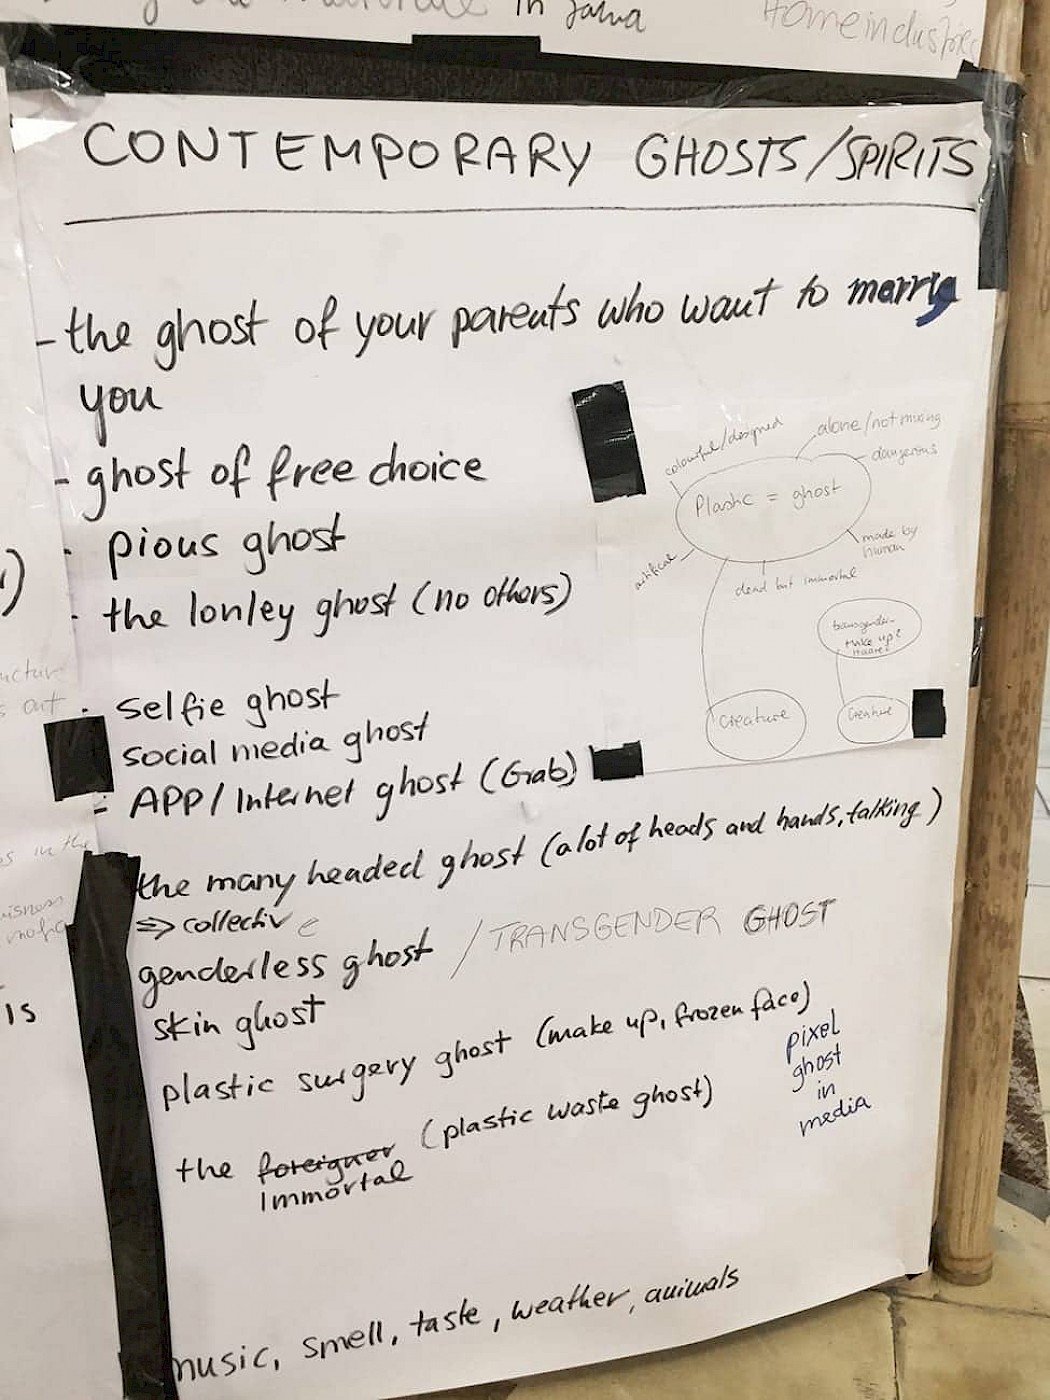 in Java
Homeindustrie
CONTEMPORARY GHOSTS/SPIRITS
- the ghost of your parents who want to marry
you
- ghost of free choice
- pious ghost
- the lonley ghost (no others)
- selfie ghost
social media ghost
- APP / Internet ghost (Grab)
the many headed ghost (a lot of heads and hands, talking)
=> collective
genderless ghost / TRANSGENDER GHOST
skin ghost
plastic surgery ghost (make up, frozen face)
pixel
ghost
in
media
the foreigner (plastic waste ghost)
Immortal
music, smell, taste, weather, animals
colourful/designed
alone/not mixing
dangerous
Plastic = ghost
made by
human
artifical
dead but immortal
transgender
Make up?
Creature
Creature
s out
s in the
is